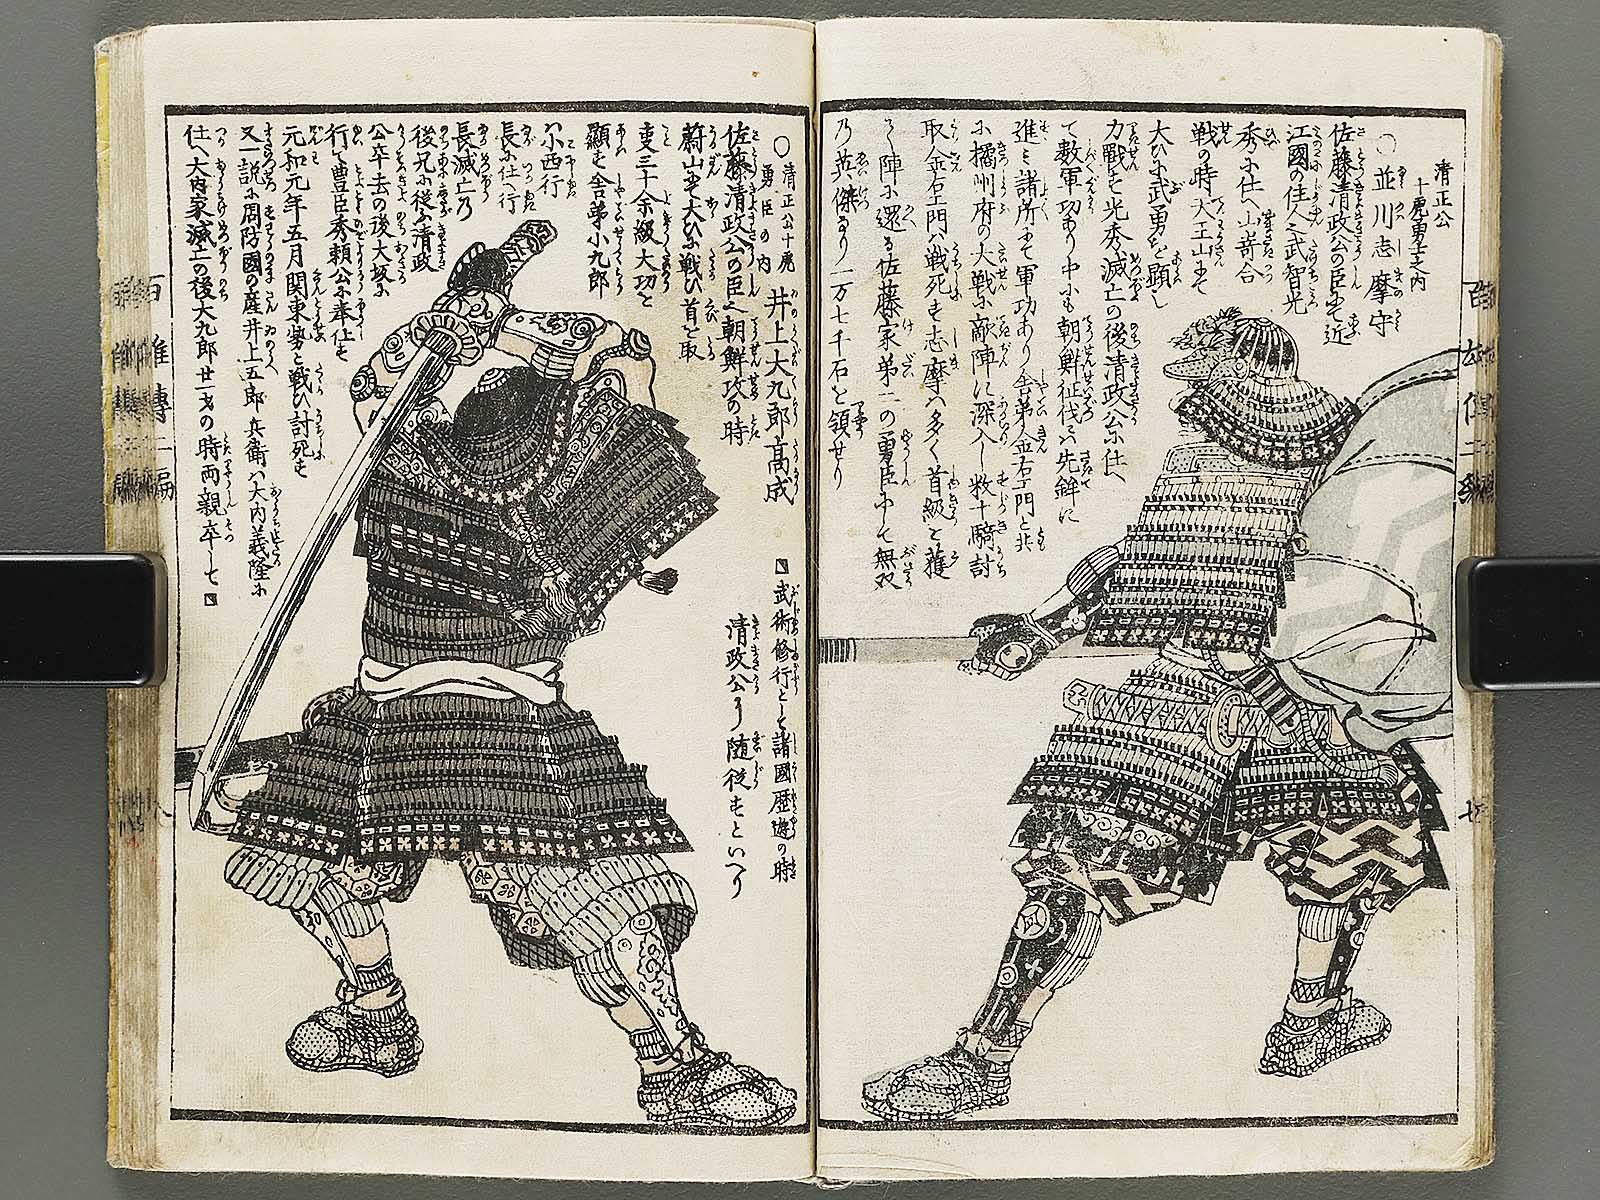 清正公
十虎勇士之内
○ 並川志摩守
佐藤清政公の臣にて近
江國の住人之武智光
秀に仕へ山嵜合
戦の時大王山にて
大ひに武勇を顕し
力戰す光秀滅亡の後清政公に仕へ
て數軍功あり中にも朝鮮征伐には先鉾に
進み諸所にて軍功あり舎弟金右エ門と共
に橘州府の大戦に敵陣に深入し数十騎討
取金右エ門は戦死す志摩は多く首級を獲
て陣に還る佐藤家第一の勇臣にして無双
の英傑なり一万七千石を領せり
○清正公十虎
勇臣の内
井上大九郎高成
佐藤清政公の臣之朝鮮攻の時
蔚山にて大ひに戦ひ首を取
事三千余級大功を
顕す舎弟小九郎
小西行
長に仕へ行
長滅亡の
後兄に従ふ清政
公卒去の後大坂に
行て豊臣秀頼公に奉仕す
元和元年五月関東勢と戦ひ討死す
又一説に周防國の産井上五郎兵衛は大内義隆に
仕へ大内家滅亡の後大九郎廿一才の時両親卒して
武術修行として諸國歴遊の時
清政公に随従すといへり
百雄傳二編